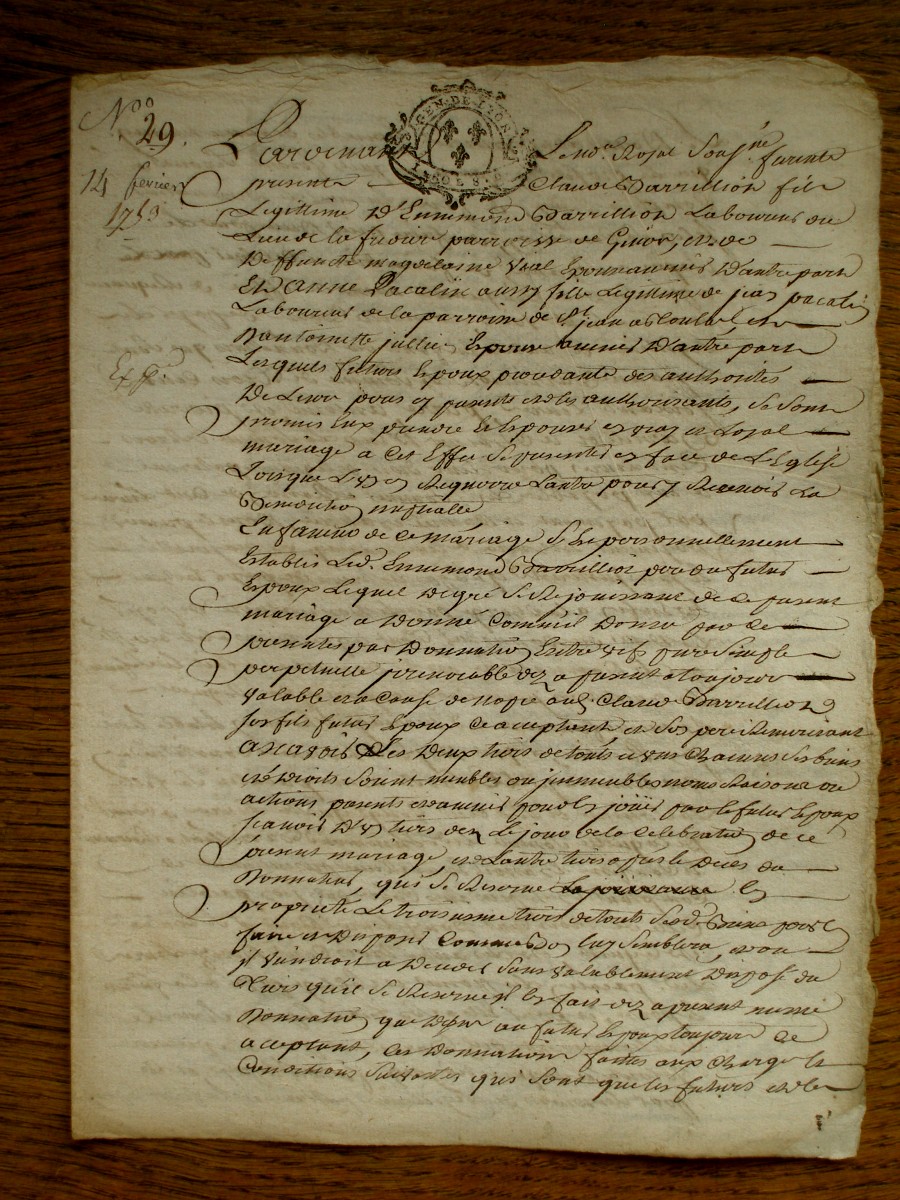 N° 29.
14 fevrier
1753
Ex gr.
GEN. DE LYON
Pardevant Le no.re Royal Sousig.né furent
presents Claude Barrillion fils
Legittime D'Ennimond Barrillion Laboureur du
Lieu de la parroisse de et de
Deffuncte magdelaine vial Epoux avenir D'autre part
Et D'anne Pacalin aussy fille Legittime de jean pacalin
Laboureur de la parroisse de St jean et
D'antoinette jullien Epouse avenir D'autre part
Lesquels futurs Epoux procedants des authorités
De Leurs peres et parents et les authorisants, se sont
promis Eux prendre et Epouser en vray et Loyal
mariage a Cet Effet se presenter en face de L'Eglise
Lorsque L'un en Requerra Lautre pour y Recevoir La
Benediction nuptialle
En faveur de ce mariage S'est personnellement
Establis Led. Ennimond Barrillion pere du futur
Epoux Lequel De gré Se Rejouissant de ce present
mariage a Donné Comme il Donne par ces
presentes par Donnation Entre vifs pure Simple
perpetuelle jrrevocable dez a present a toujours
valable et a Cause de nopce aud. Claude Barrillion
son fils futur Epoux ce acceptant et Son pere Remerciant
a Scavoir Les Deux tiers de touts et un Chacuns Ses biens
et Droits Soient meubles ou jmmeubles noms Raisons ou
actions presents et avenir pour En joüir par le futur Epoux
Scavoir D'un tiers dez Le jour de la Celebration de ce
present mariage, et Lautre tiers apres le Deces du
Donnateur, qui Se Reserve en
proprieté Le troisieme tiers de touts Sesd. Biens pour En
faire et Disposer Comme bon luy Semblera, et ou
jl viendroit a Deceder Sans valablement Disposer du
Tiers qu'il Se Reserve jl En fait dez a present mesme
Donnation que Dessus au futur Epoux toujours ce
acceptant, Ces Donnations faites aux Charges et
Conditions Suivantes qui Sont que les futurs et les